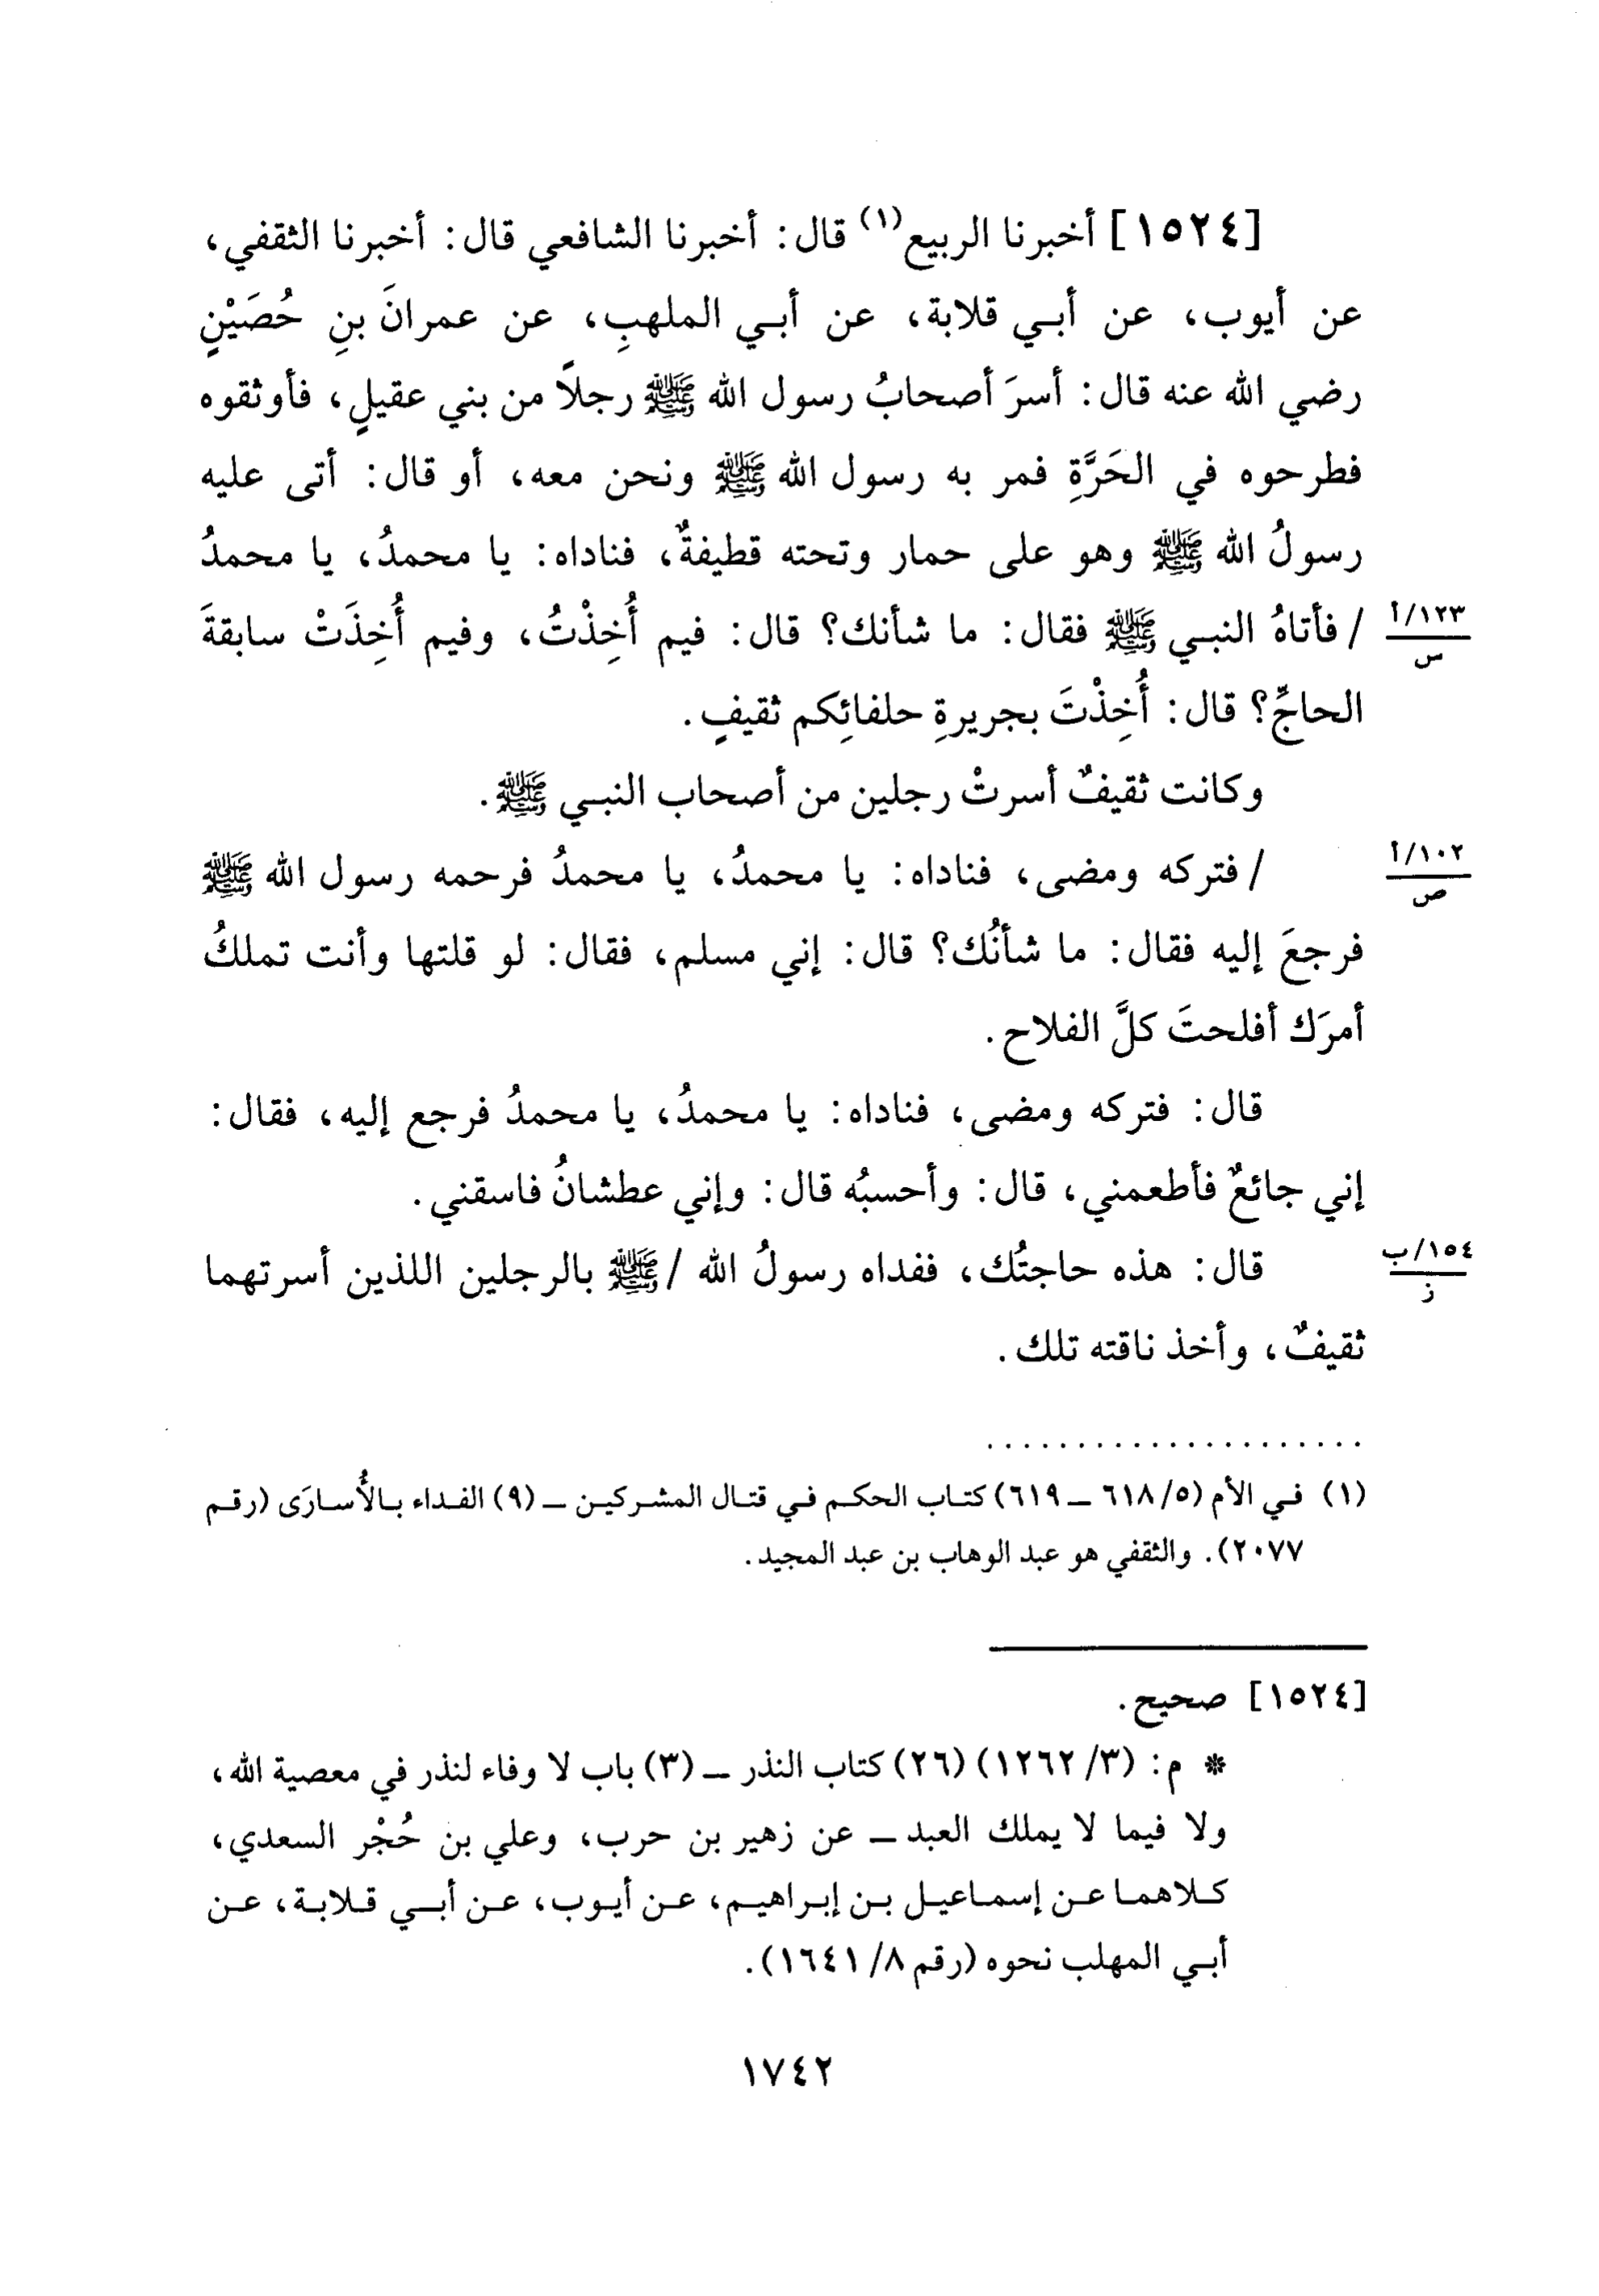 [١٥٢٤] أخبرنا الربيع(١) قال: أخبرنا الشافعي قال: أخبرنا الثقفي،
عن أيوب، عن أبي قلابة، عن أبي الملهبِ، عن عمرانَ بنِ حُصَيْنٍ
رضي الله عنه قال: أسرَ أصحابُ رسول الله ﷺ رجلاً من بني عقيلٍ، فأوثقوه
فطرحوه في الحَرَّةِ فمر به رسول الله ﷺ ونحن معه، أو قال: أتى عليه
رسولُ الله ﷺ وهو على حمار وتحته قطيفةٌ، فناداه: يا محمدُ، يا محمدُ
١٢٣/أ
س
/ فأتاهُ النبي ﷺ فقال: ما شأنك؟ قال: فيم أُخِذْتُ، وفيم أُخِذَتْ سابقةَ
الحاجِّ؟ قال: أُخِذْتَ بجريرةِ حلفائِكم ثقيفٍ.
وكانت ثقيفٌ أسرتْ رجلين من أصحاب النبي ﷺ.
١٠٢/أ
ص
/ فتركه ومضى، فناداه: يا محمدُ، يا محمدُ فرحمه رسول الله ﷺ
فرجعَ إليه فقال: ما شأنُك؟ قال: إني مسلم، فقال: لو قلتها وأنت تملكُ
أمرَك أفلحتَ كلَّ الفلاح.
قال: فتركه ومضى، فناداه: يا محمدُ، يا محمدُ فرجع إليه، فقال:
إني جائعٌ فأطعمني، قال: وأحسبُه قال: وإني عطشانُ فاسقني.
١٥٤/ب
ز
قال: هذه حاجتُك، ففداه رسولُ الله / ﷺ بالرجلين اللذين أسرتهما
ثقيفٌ، وأخذ ناقته تلك.
(١) في الأم (٥/ ٦١٨ ــ ٦١٩) كتاب الحكم في قتال المشركين ــ (٩) الفداء بالأُسارَى (رقم
٢٠٧٧). والثقفي هو عبد الوهاب بن عبد المجيد.
[١٥٢٤] صحيح.
* م: (٣/ ١٢٦٢) (٢٦) كتاب النذر ــ (٣) باب لا وفاء لنذر في معصية الله،
ولا فيما لا يملك العبد ــ عن زهير بن حرب، وعلي بن حُجْر السعدي،
كلاهما عن إسماعيل بن إبراهيم، عن أيوب، عن أبي قلابة، عن
أبي المهلب نحوه (رقم ٨/ ١٦٤١).
١٧٤٢